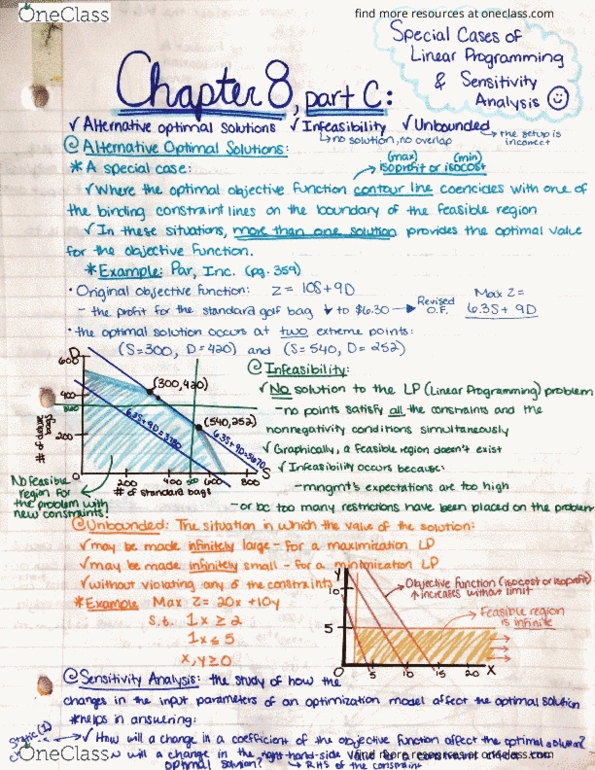 OneClass
find more resources at oneclass.com
Special Cases of
Linear Programming
& Sensitivity
Analysis
Chapter 8, part C:
✓ Alternative optimal solutions ✓ Infeasibility ✓ Unbounded
↳ no solution, no overlap
↳ the setup is
incorrect
@ Alternative Optimal Solutions:
(max) (min)
* A special case: → isoprofit or isocost
✓ Where the optimal objective function contour line coencides with one of
the binding constraint lines on the boundary of the feasible region
✓ In these situations, more than one solution provides the optimal value
for the objective function.
* Example: Par, Inc. (pg. 359)
• Original objective function: Z = 10S + 9D
Max Z=
- the profit for the standard golf bag ↓ to $6.30 → Revised O.F. 6.3S + 9D
• the optimal solution occurs at two extreme points:
(S=300, D=420) and (S=540, D=252)
D
600
400
200
(300,420)
(540,252)
6.3S+9D=3780
6.3S+9D=5670
S
200 400 600 800
# of deluxe
bags
# of standard bags
No feasible
region for
the problem with
new constraints!
@ Infeasibility:
✓ No solution to the LP (Linear Programming) problem
- no points satisfy all the constraints and the
nonnegativity conditions simultaneously
✓ Graphically, a feasible region doesn't exist
✓ Infeasibility occurs because:
- mngmt's expectations are too high
- or bc too many restrictions have been placed on the problem
@ Unbounded: The situation in which the value of the solution:
✓ may be made infinitely large - for a maximization LP
✓ may be made infinitely small - for a minimization LP
✓ without violating any of the constraints
* Example Max Z = 20x + 10y
s.t. 1x ≥ 2
1x ≤ 5
x, y ≥ 0
Y
10
5
5 10 15 20 X
Objective Function (isocost or isoprofit)
↑ increases without limit
Feasible region
is infinite
@ Sensitivity Analysis: the study of how the
changes in the input parameters of an optimization model affect the optimal solution
* helps in answering:
✓ How will a change in a coefficient of the objective function affect the optimal solution?
will a change in the right-hand-side value for a constraint affect the
optimal solution? ↳ RHS of the constraint
OneClass
find more resources at oneclass.com